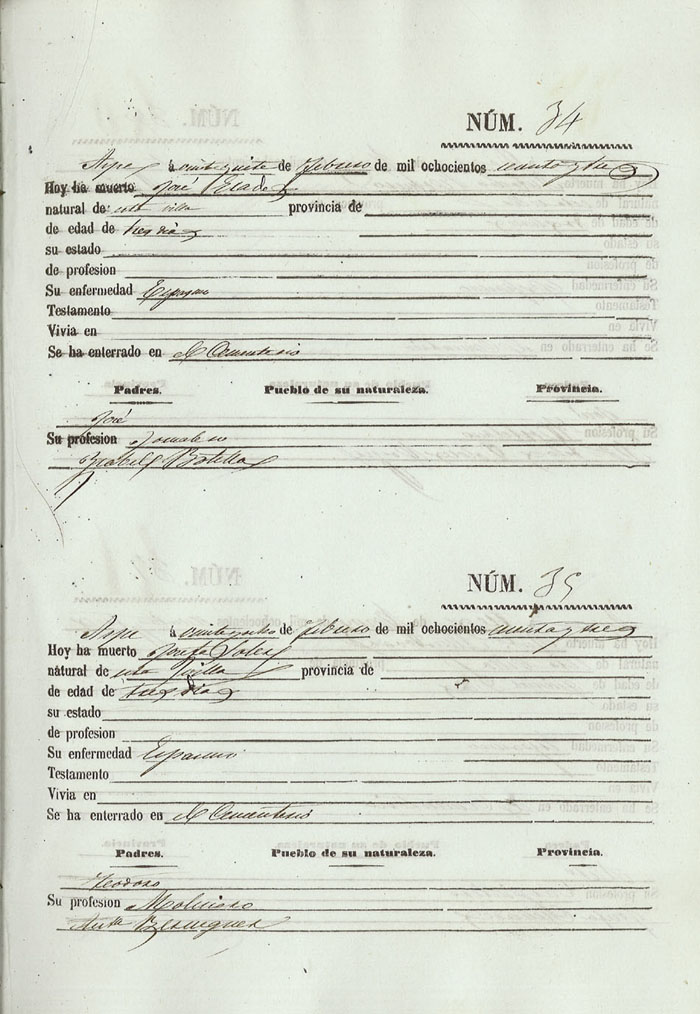 NÚM. 34
Aspe á veinte y siete de Febrero de mil ochocientos
Hoy ha muerto José
natural de esta villa provincia de
de edad de tres dias
su estado
de profesion
Su enfermedad Espasmo
Testamento
Vivia en
Se ha enterrado en el Cementerio
Padres. Pueblo de su naturaleza. Provincia.
José
Su profesion Jornalero
Ysabel Botella
NÚM. 35
Aspe á veinte y ocho de Febrero de mil ochocientos
Hoy ha muerto Josefa
natural de esta Villa provincia de
de edad de tres dias
su estado
de profesion
Su enfermedad Espasmo
Testamento
Vivia en
Se ha enterrado en el Cementerio
Padres. Pueblo de su naturaleza. Provincia.
Teodoro
Su profesion Molinero
Berenguer